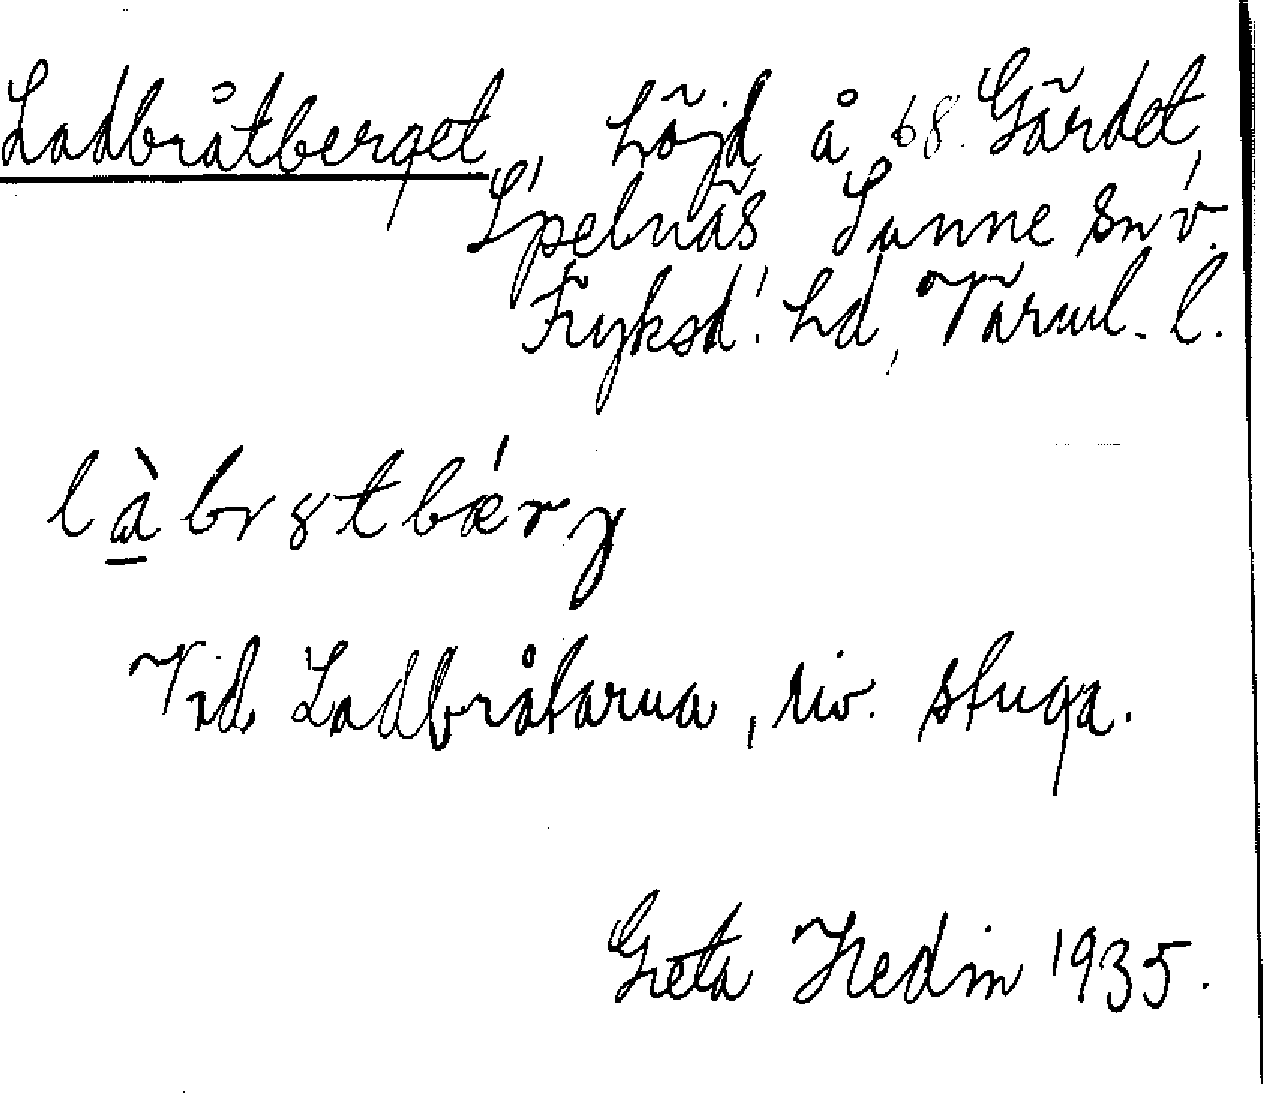 Ladbråtberget, höjd å 68. Gärdet,
Spelnäs Sunne sn v.
Fryksd. hd, Värml. l.
là br8tbǽrg
Vid Ladbråtarna, riv. stuga.
Greta Hedin 1935.